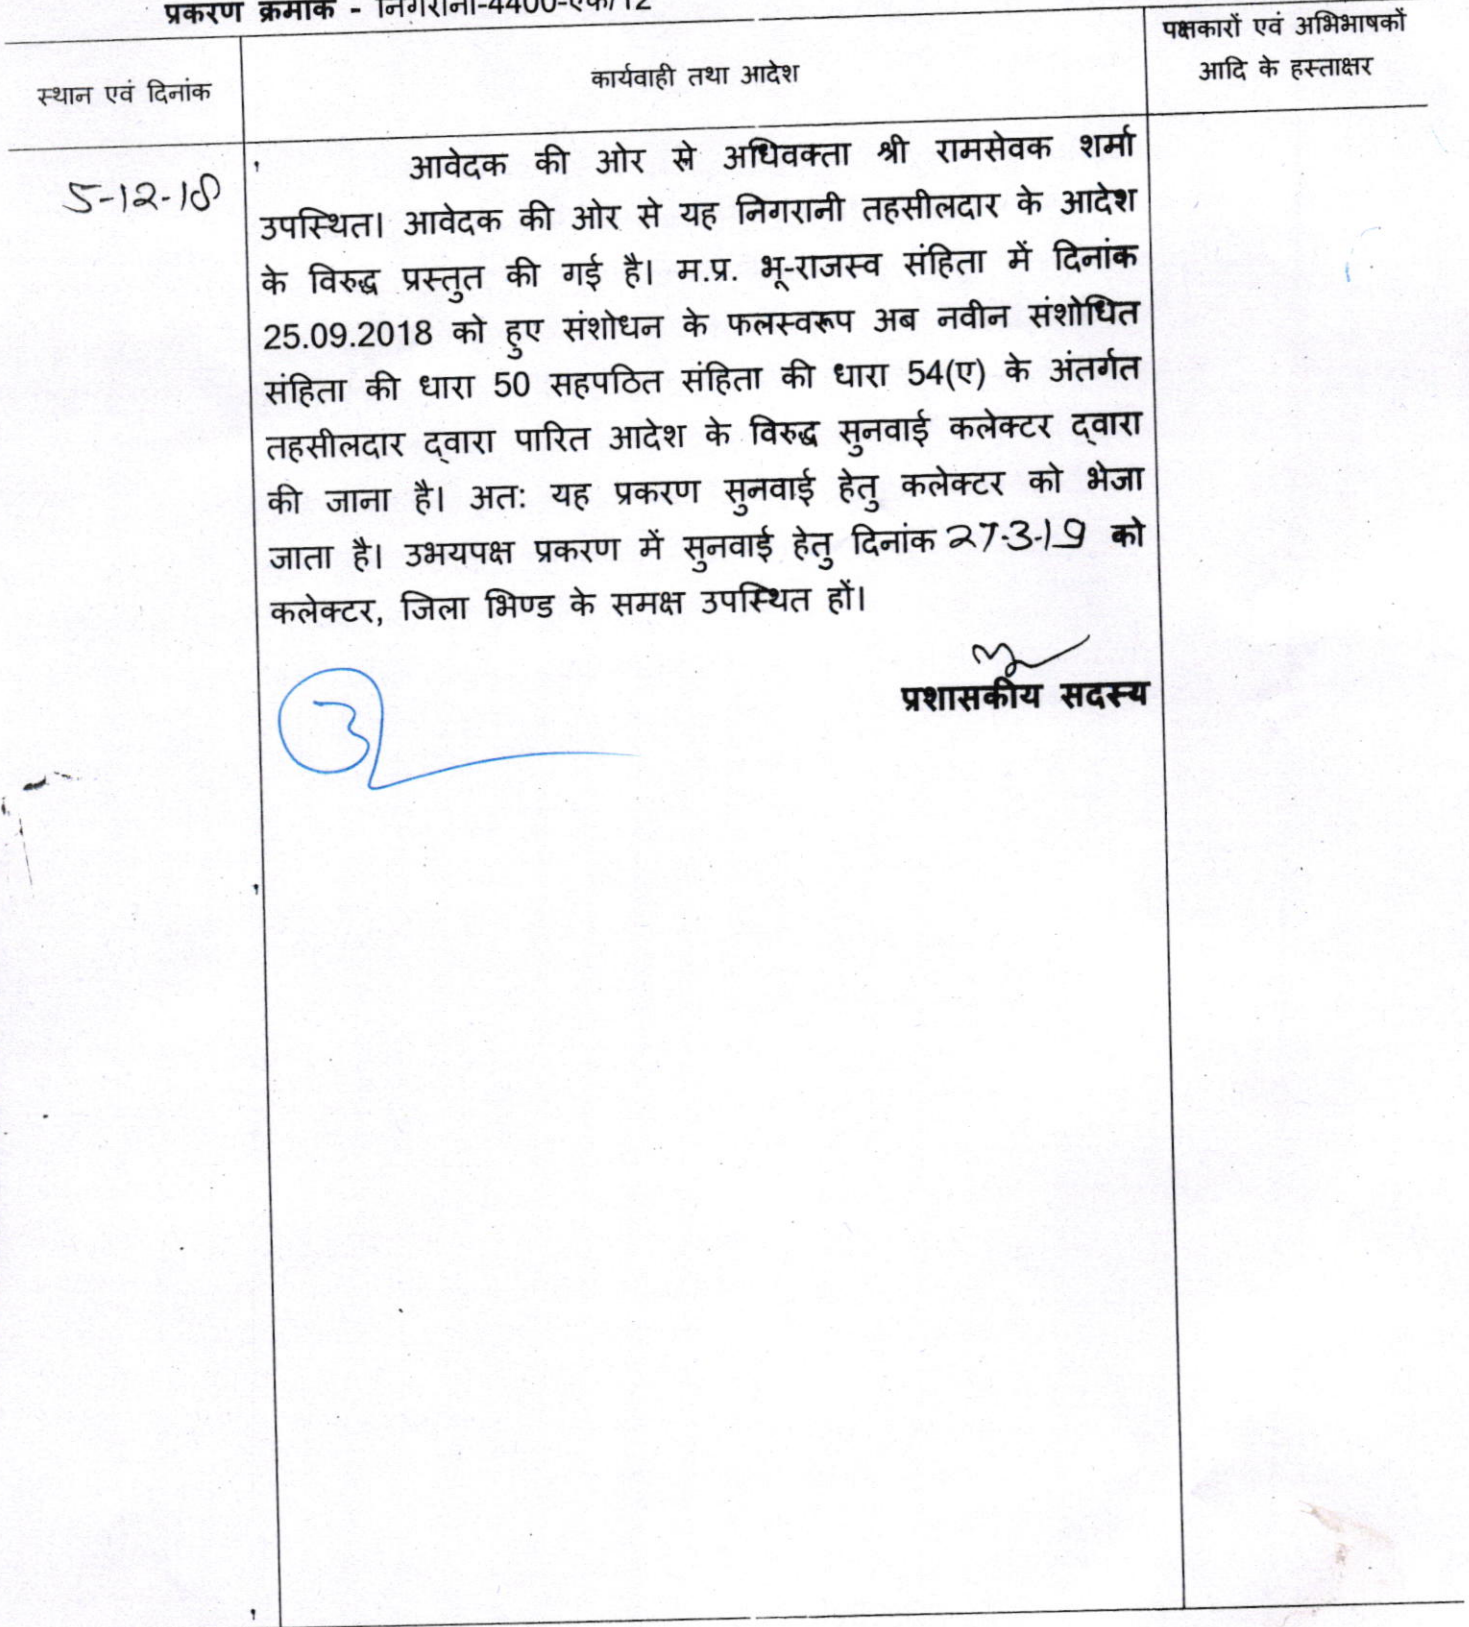 प्रकरण क्रमांक - निगरानी-4400-एक/12
स्थान एवं दिनांक
कार्यवाही तथा आदेश
पक्षकारों एवं अभिभाषकों
आदि के हस्ताक्षर
5-12-18
आवेदक की ओर से अधिवक्ता श्री रामसेवक शर्मा
उपस्थित। आवेदक की ओर से यह निगरानी तहसीलदार के आदेश
के विरुद्ध प्रस्तुत की गई है। म.प्र. भू-राजस्व संहिता में दिनांक
25.09.2018 को हुए संशोधन के फलस्वरूप अब नवीन संशोधित
संहिता की धारा 50 सहपठित संहिता की धारा 54(ए) के अंतर्गत
तहसीलदार द्वारा पारित आदेश के विरुद्ध सुनवाई कलेक्टर द्वारा
की जाना है। अतः यह प्रकरण सुनवाई हेतु कलेक्टर को भेजा
जाता है। उभयपक्ष प्रकरण में सुनवाई हेतु दिनांक 27-3-19 को
कलेक्टर, जिला भिण्ड के समक्ष उपस्थित हों।
प्रशासकीय सदस्य